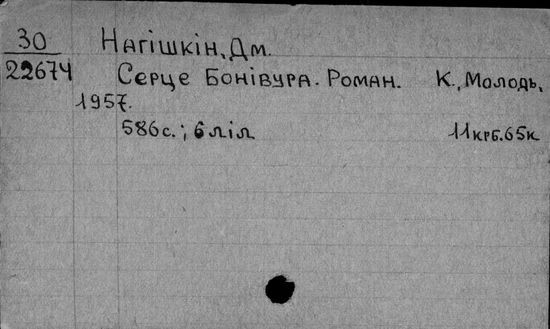 30
22674
Нагішкін, Дм.
Серце Бонівура. Роман. К., Молодь,
1957.
586с.; 6 л іл 11 крб. 65к